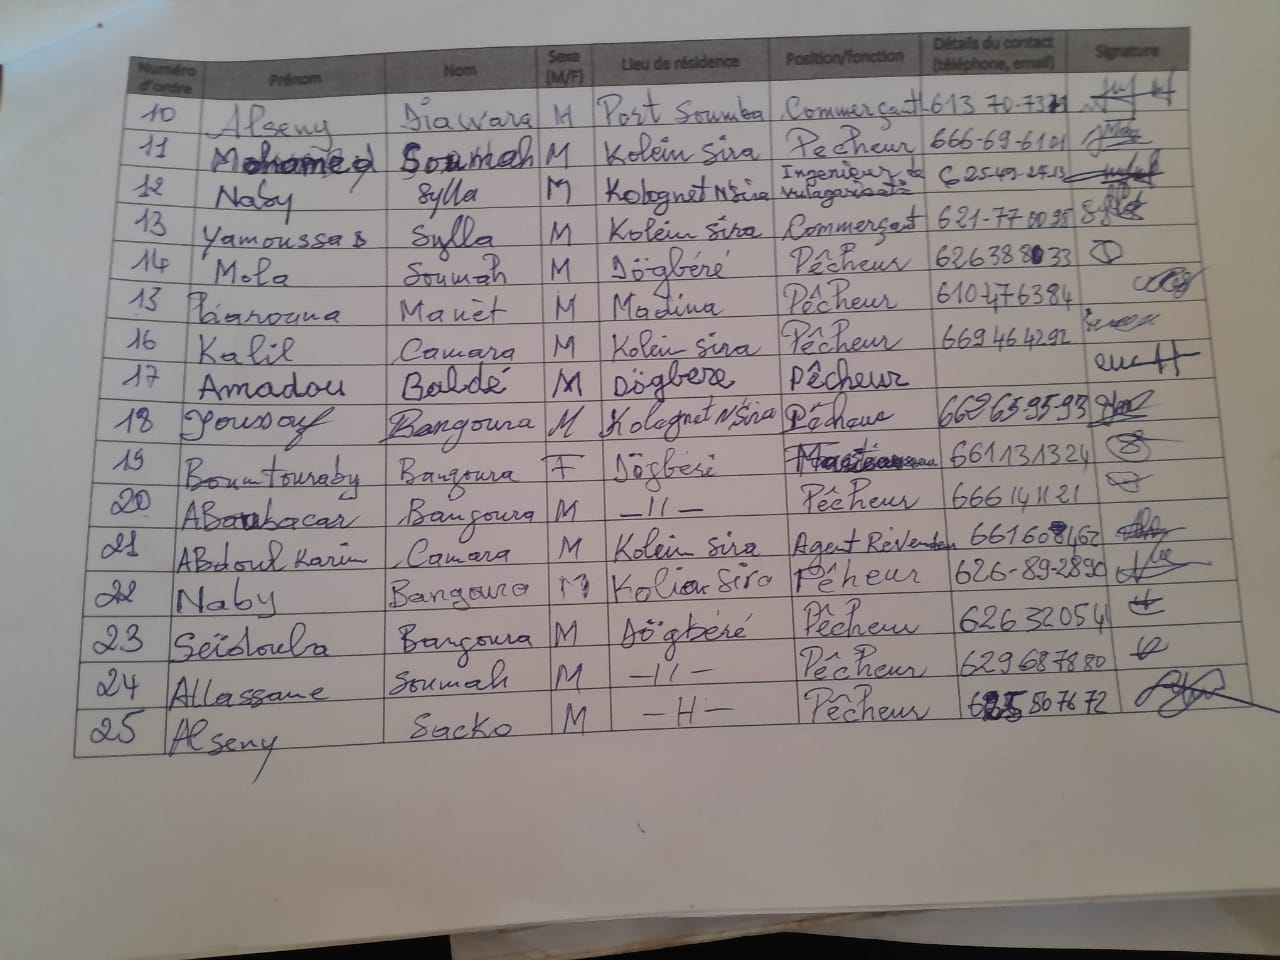 Numéro d'ordre Prénom Nom Sexe (M/F) Lieu de résidence Position/fonction Détails du contact (téléphone, email) Signature
10 Alseny Diawara M Port Soumba Commerçant 613 70-73
11 Mohamed Soumah M Kolein Sira Pêcheur 666-69-6101
12 Naby Sylla M Kolognet N'Sira Ingenieur de
13 Yamoussa Sylla M Kolein Sira Commerçant 621-77
14 Mola Soumah M Dögbéré Pêcheur 626388033
15 Manèt M Madina Pêcheur 610476384
16 Kalil Camara M Kolein Sira Pêcheur 669464292
17 Amadou Baldé M Dögbere Pêcheur
18 Yousouf Bangoura M Kolagnet N'Sira Pêcheur 669659593
19 Boumtouraby Bangoura F Dögbéré 661131324
20 ABoubacar Bangoura M —11— Pêcheur 666141121
21 ABdoul Karim Camara M Kolein Sira Agent
22 Naby Bangoura M Kolien Sira Pêheur 626-89-2890
23 Seïdouba Bangoura M Dögbéré Pêcheur 62632054
24 Allassane Soumah M —11— Pêcheur 629687880
25 Alseny Sacko M —11— Pêcheur 807672